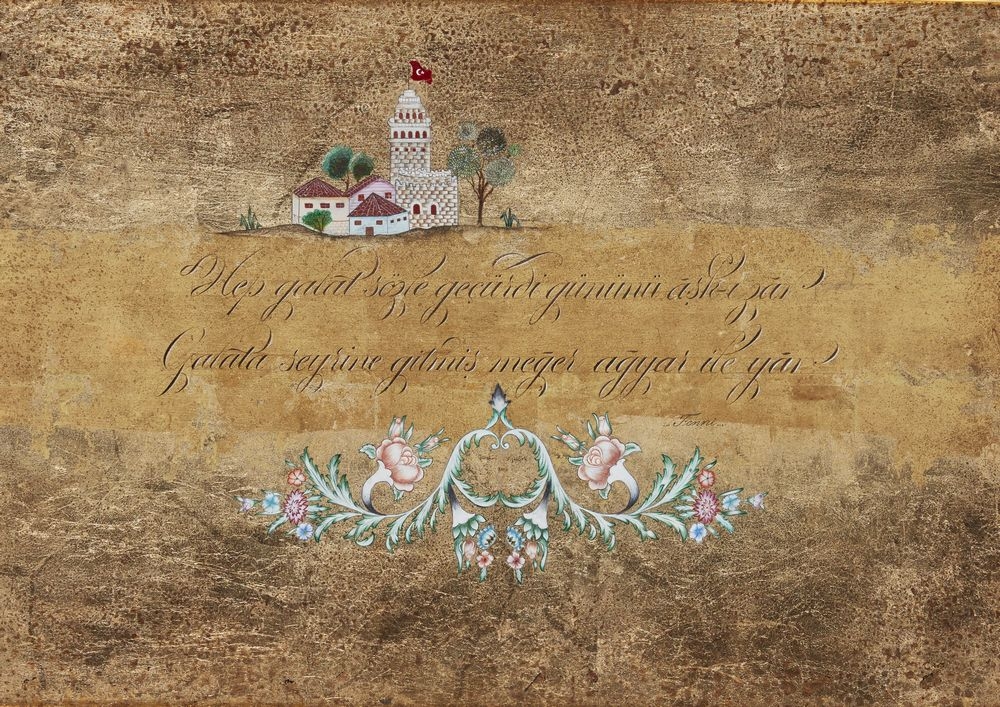 Hep galat sözle geçürdi gününü âşık-ı zâr
Galata seyrine gitmiş meğer ağyar ile yâr
.. Fenni ..